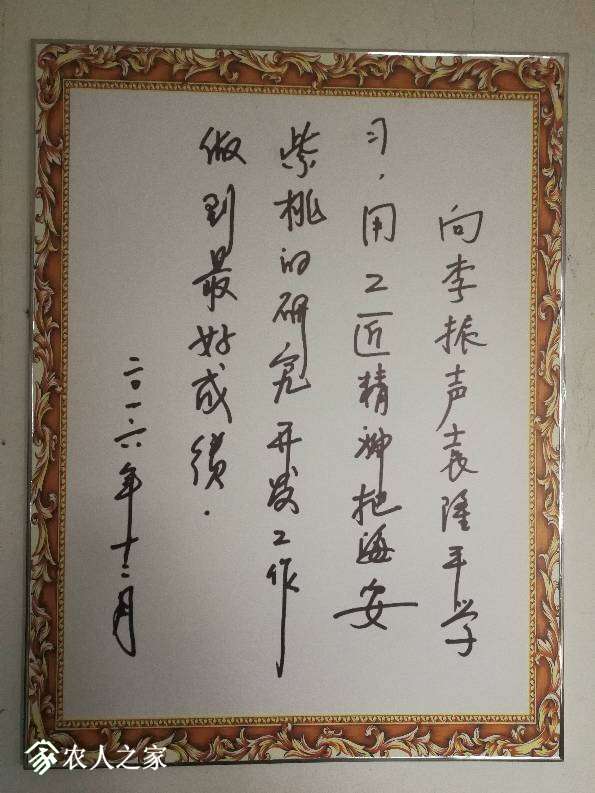 向李振声袁隆平学
习，用工匠精神把海安
紫桃的研究开发工作
做到最好成绩．
二〇一六年十二月
农人之家